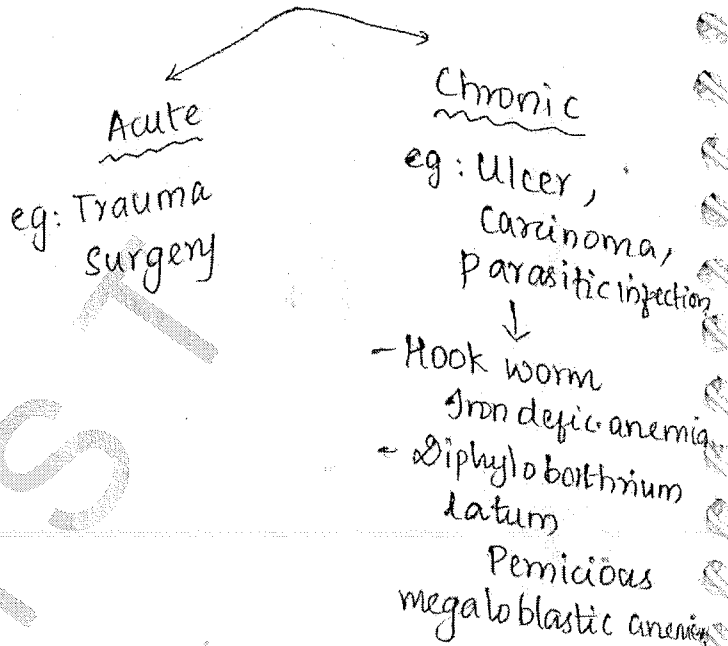 Acute
eg: Trauma
surgery
Chronic
eg: Ulcer,
Carcinoma,
parasitic infection
↓
- Hook worm
Iron defic. anemia
- Diphylobothrium
latum
Pernicious
megaloblastic anemia